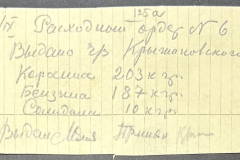 125а
1/IX Расходный ордер № 6
Выдано гр Крыжановского
Керосина 203 кгр.
Бензина 187 кгр.
Солидани 10 кгр.
Выдал Принял